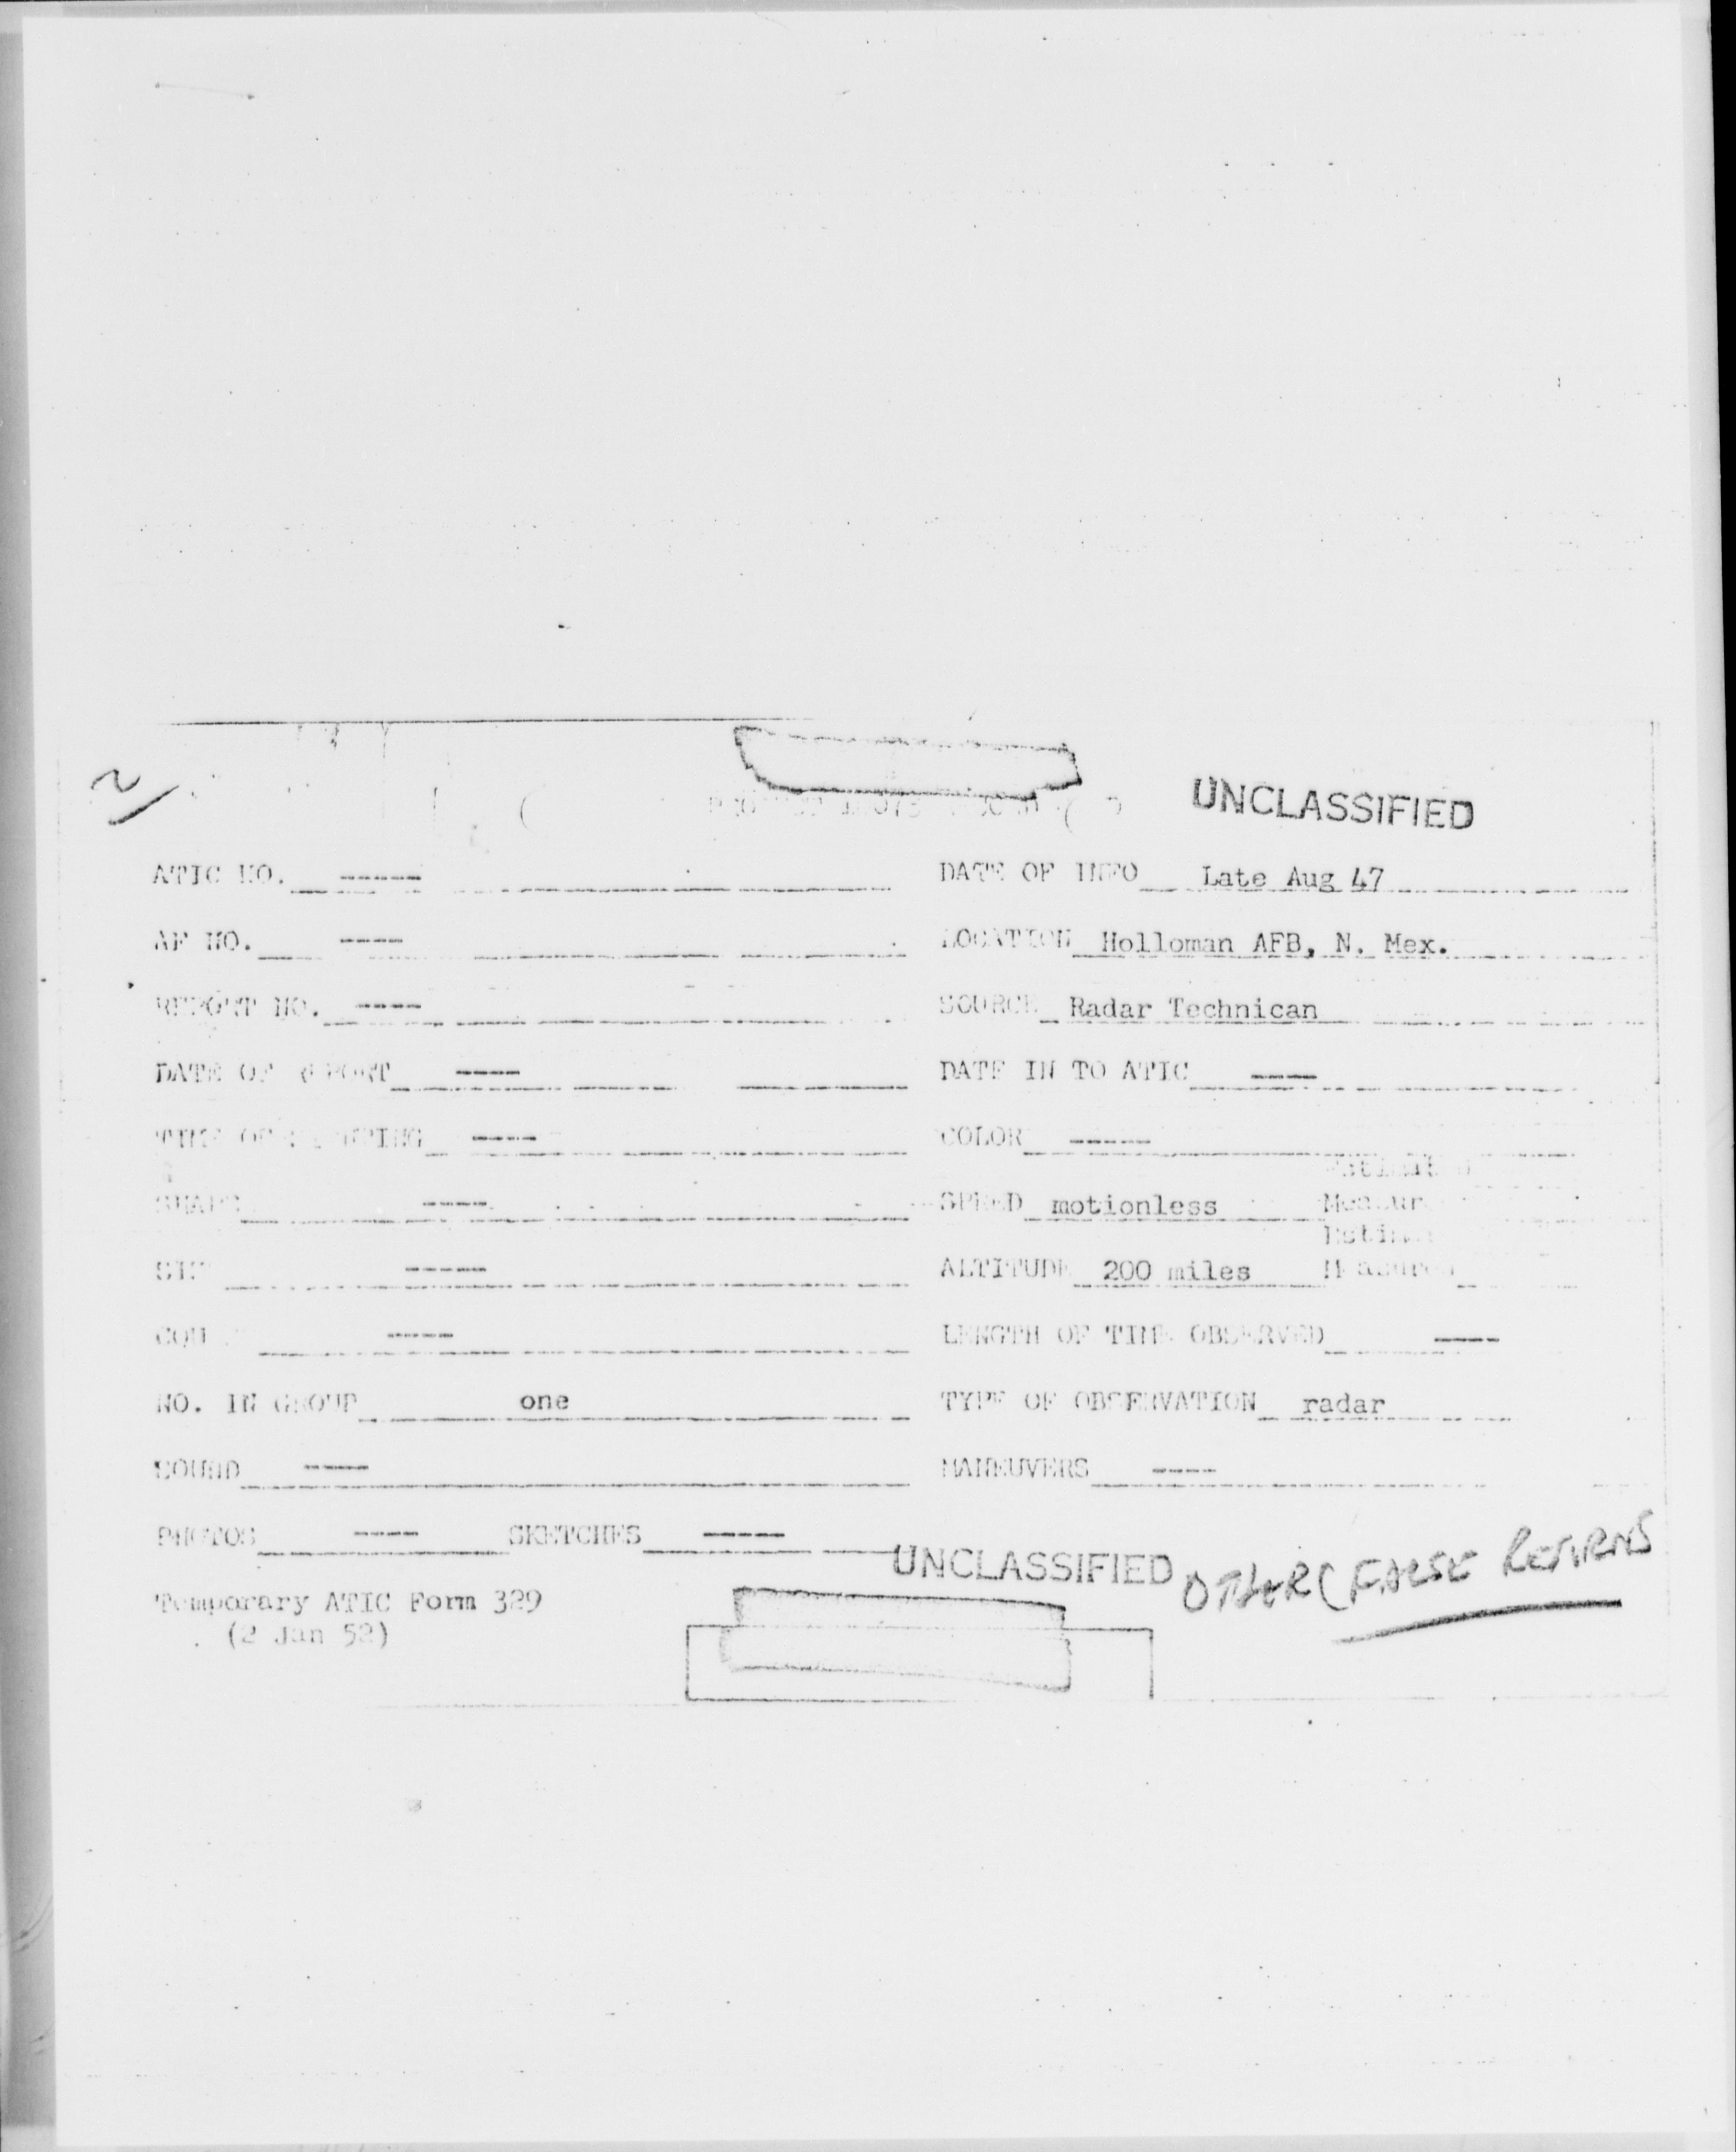 UNCLASSIFIED
ATIC NO. ----- DATE OF INFO Late Aug 47
AF NO. ---- LOCATION Holloman AFB, N. Mex.
REPORT NO. ---- SOURCE Radar Technican
DATE OF REPORT ---- DATE IN TO ATIC ----
TIME OF ---- COLOR -----
SHAPE ---- SPEED motionless
----- ALTITUDE 200 miles
---- LENGTH OF TIME OBSERVED ----
NO. IN GROUP one TYPE OF OBSERVATION radar
SOUND ---- MANEUVERS ----
PHOTOS ---- SKETCHES -----
UNCLASSIFIED OTHER (FALSE RETURNS
Temporary ATIC Form 329
(2 Jan 52)